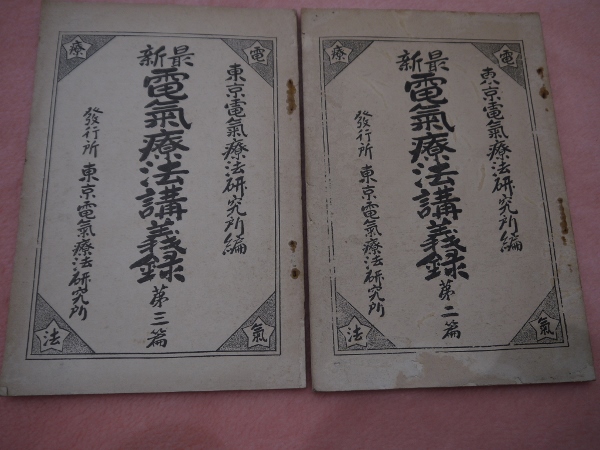 電
療
東京電氣療法研究所編
最新
電氣療法講義録 第二篇
發行所 東京電氣療法研究所
氣
法
電
療
東京電氣療法研究所編
最新
電氣療法講義録 第三篇
發行所 東京電氣療法研究所
氣
法